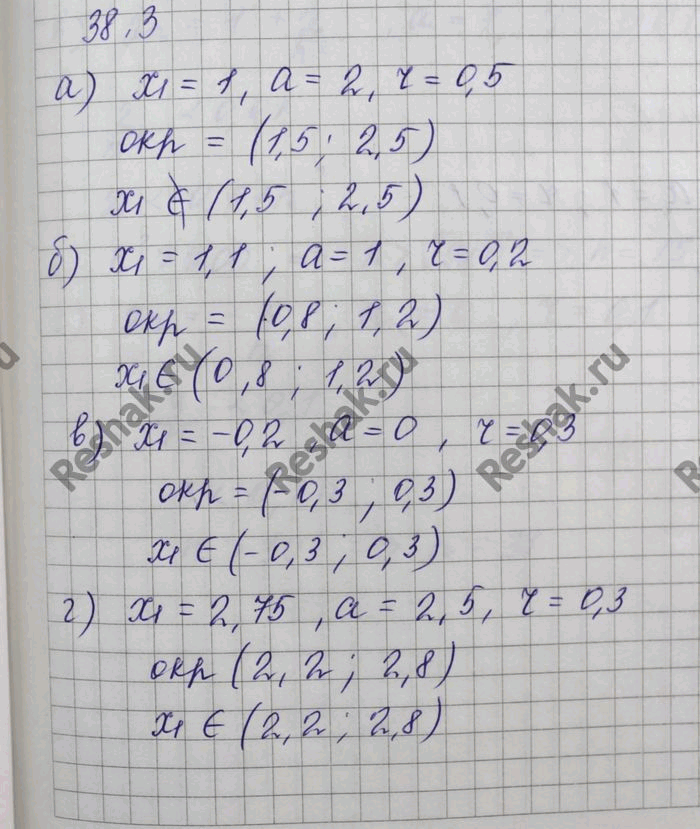 38.3
а) x₁ = 1, a = 2, r = 0,5
окр = (1,5; 2,5)
x₁ ∉ (1,5 ; 2,5)
б) x₁ = 1,1 ; a = 1 , r = 0,2
окр = (0,8 ; 1,2)
x₁ ∈ (0,8 ; 1,2)
в) x₁ = -0,2 , a = 0 , r = 0,3
окр = (-0,3 ; 0,3)
x₁ ∈ (-0,3 ; 0,3)
г) x₁ = 2,75 , a = 2,5, r = 0,3
окр (2,2 ; 2,8)
x₁ ∈ (2,2 ; 2,8)
Reshak.ru
Reshak.ru
Reshak.ru